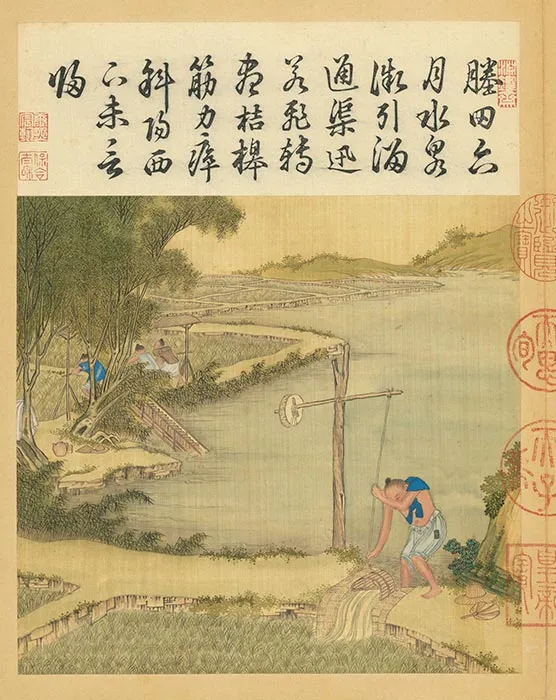 塍田六
月水泉
微引溜
通渠迅
若飛轉
盡桔槔
筋力瘁
斜陽西
下未言
歸